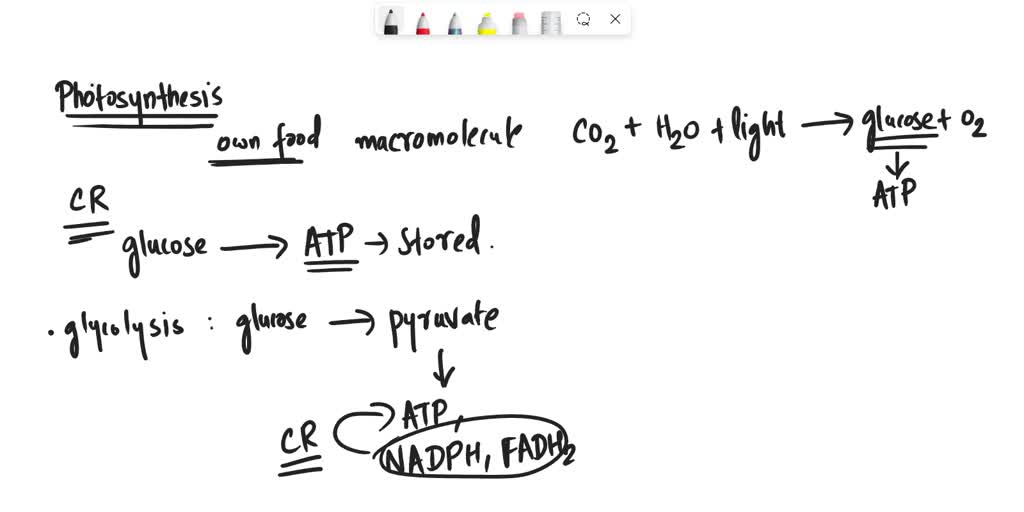 Photosynthesis
own food macromolecule CO2 + H2O + light → glucose + O2
↓
ATP
CR
glucose → ATP → stored.
. glycolysis : glucose → pyruvate
↓
CR ATP,
NADPH, FADH2